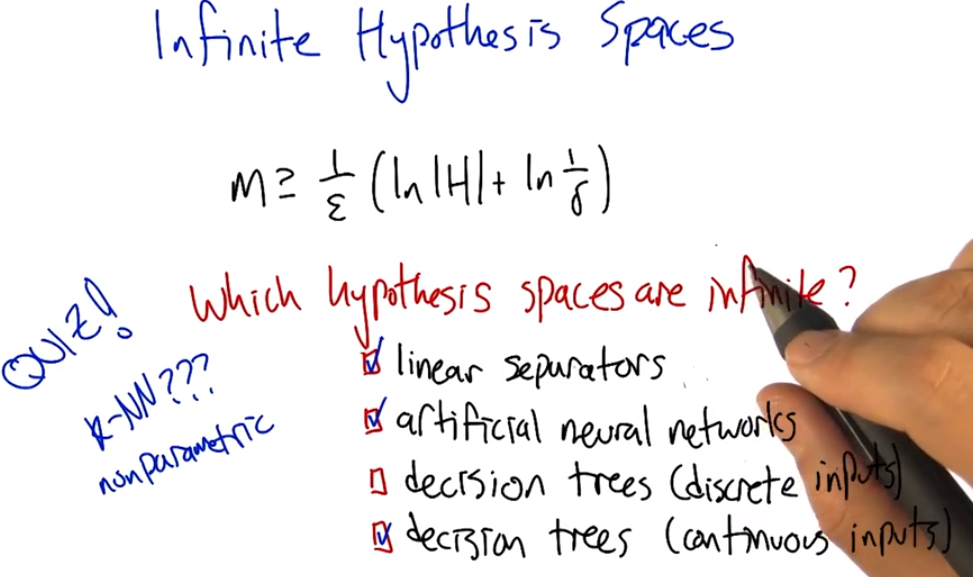 Infinite Hypothesis Spaces
m ≥ 1/ε (ln |H| + ln 1/δ)
QUIZ!
Which hypothesis spaces are infinite?
K-NN???
nonparametric
linear separators
artificial neural networks
decision trees (discrete inputs)
decision trees (continuous inputs)